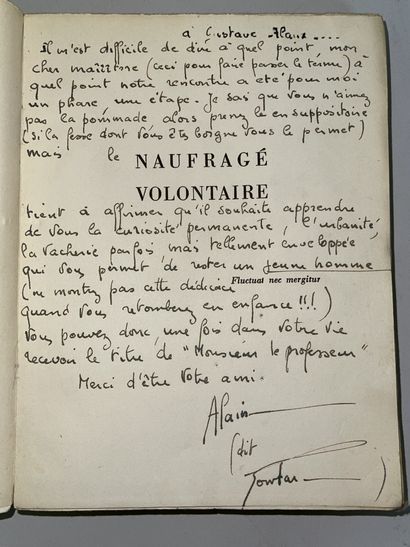 à Gustave Alaux ....
Il m'est difficile de dire à quel point, mon
cher maîîître (ceci pour faire passer le terme) à
quel point notre rencontre a été pour moi
un phare, une étape. Je sais que vous n'aimez
pas la pommade alors prenez le en suppositoire
(si la fesse dont vous êtes borgne vous le permet)
mais le
NAUFRAGÉ
VOLONTAIRE
tient à affirmer qu'il souhaite apprendre
de vous la curiosité permanente, l'urbanité,
la vacherie parfois, mais tellement enveloppée
qui vous permet de rester un jeune homme
(ne montrez pas cette dédicace
Fluctuat nec mergitur
quand vous retomberez en enfance !!!)
Vous pouvez donc une fois dans votre vie
recevoir le titre de "Monsieur le professeur"
Merci d'être votre ami.
Alain
(dit
)